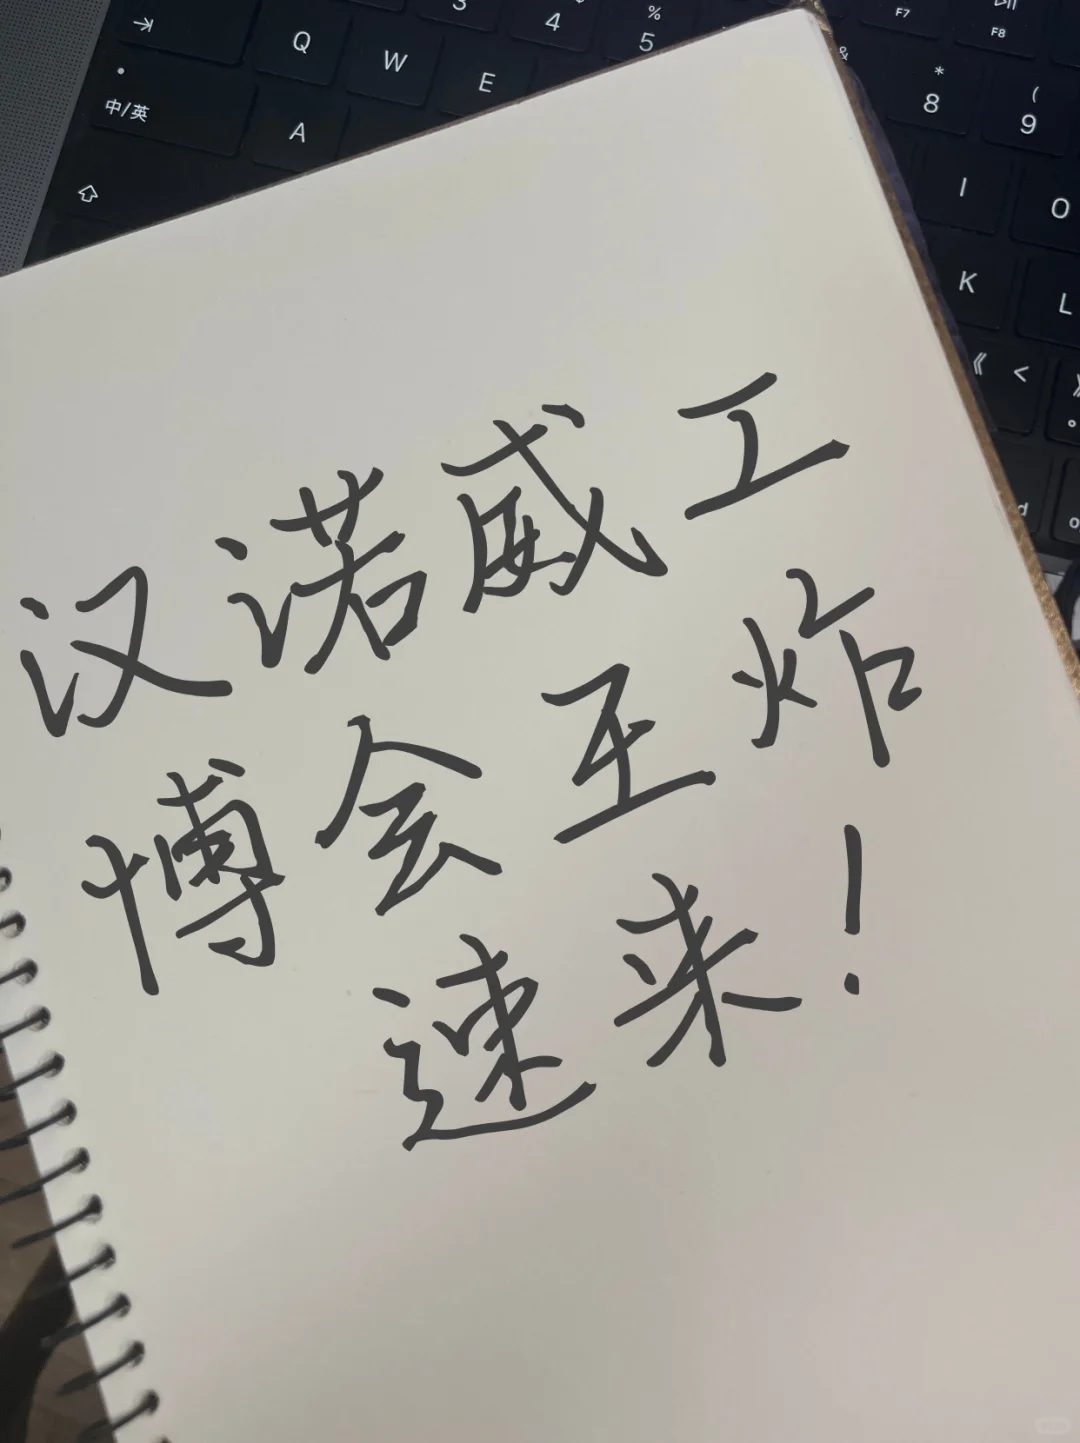 3
4
%
5
F7
F8
&
Q
W
E
*
8
(
9
中/英
A
I
O
K
L
《 <
》
。
汉诺威工
博会王炸
速来！